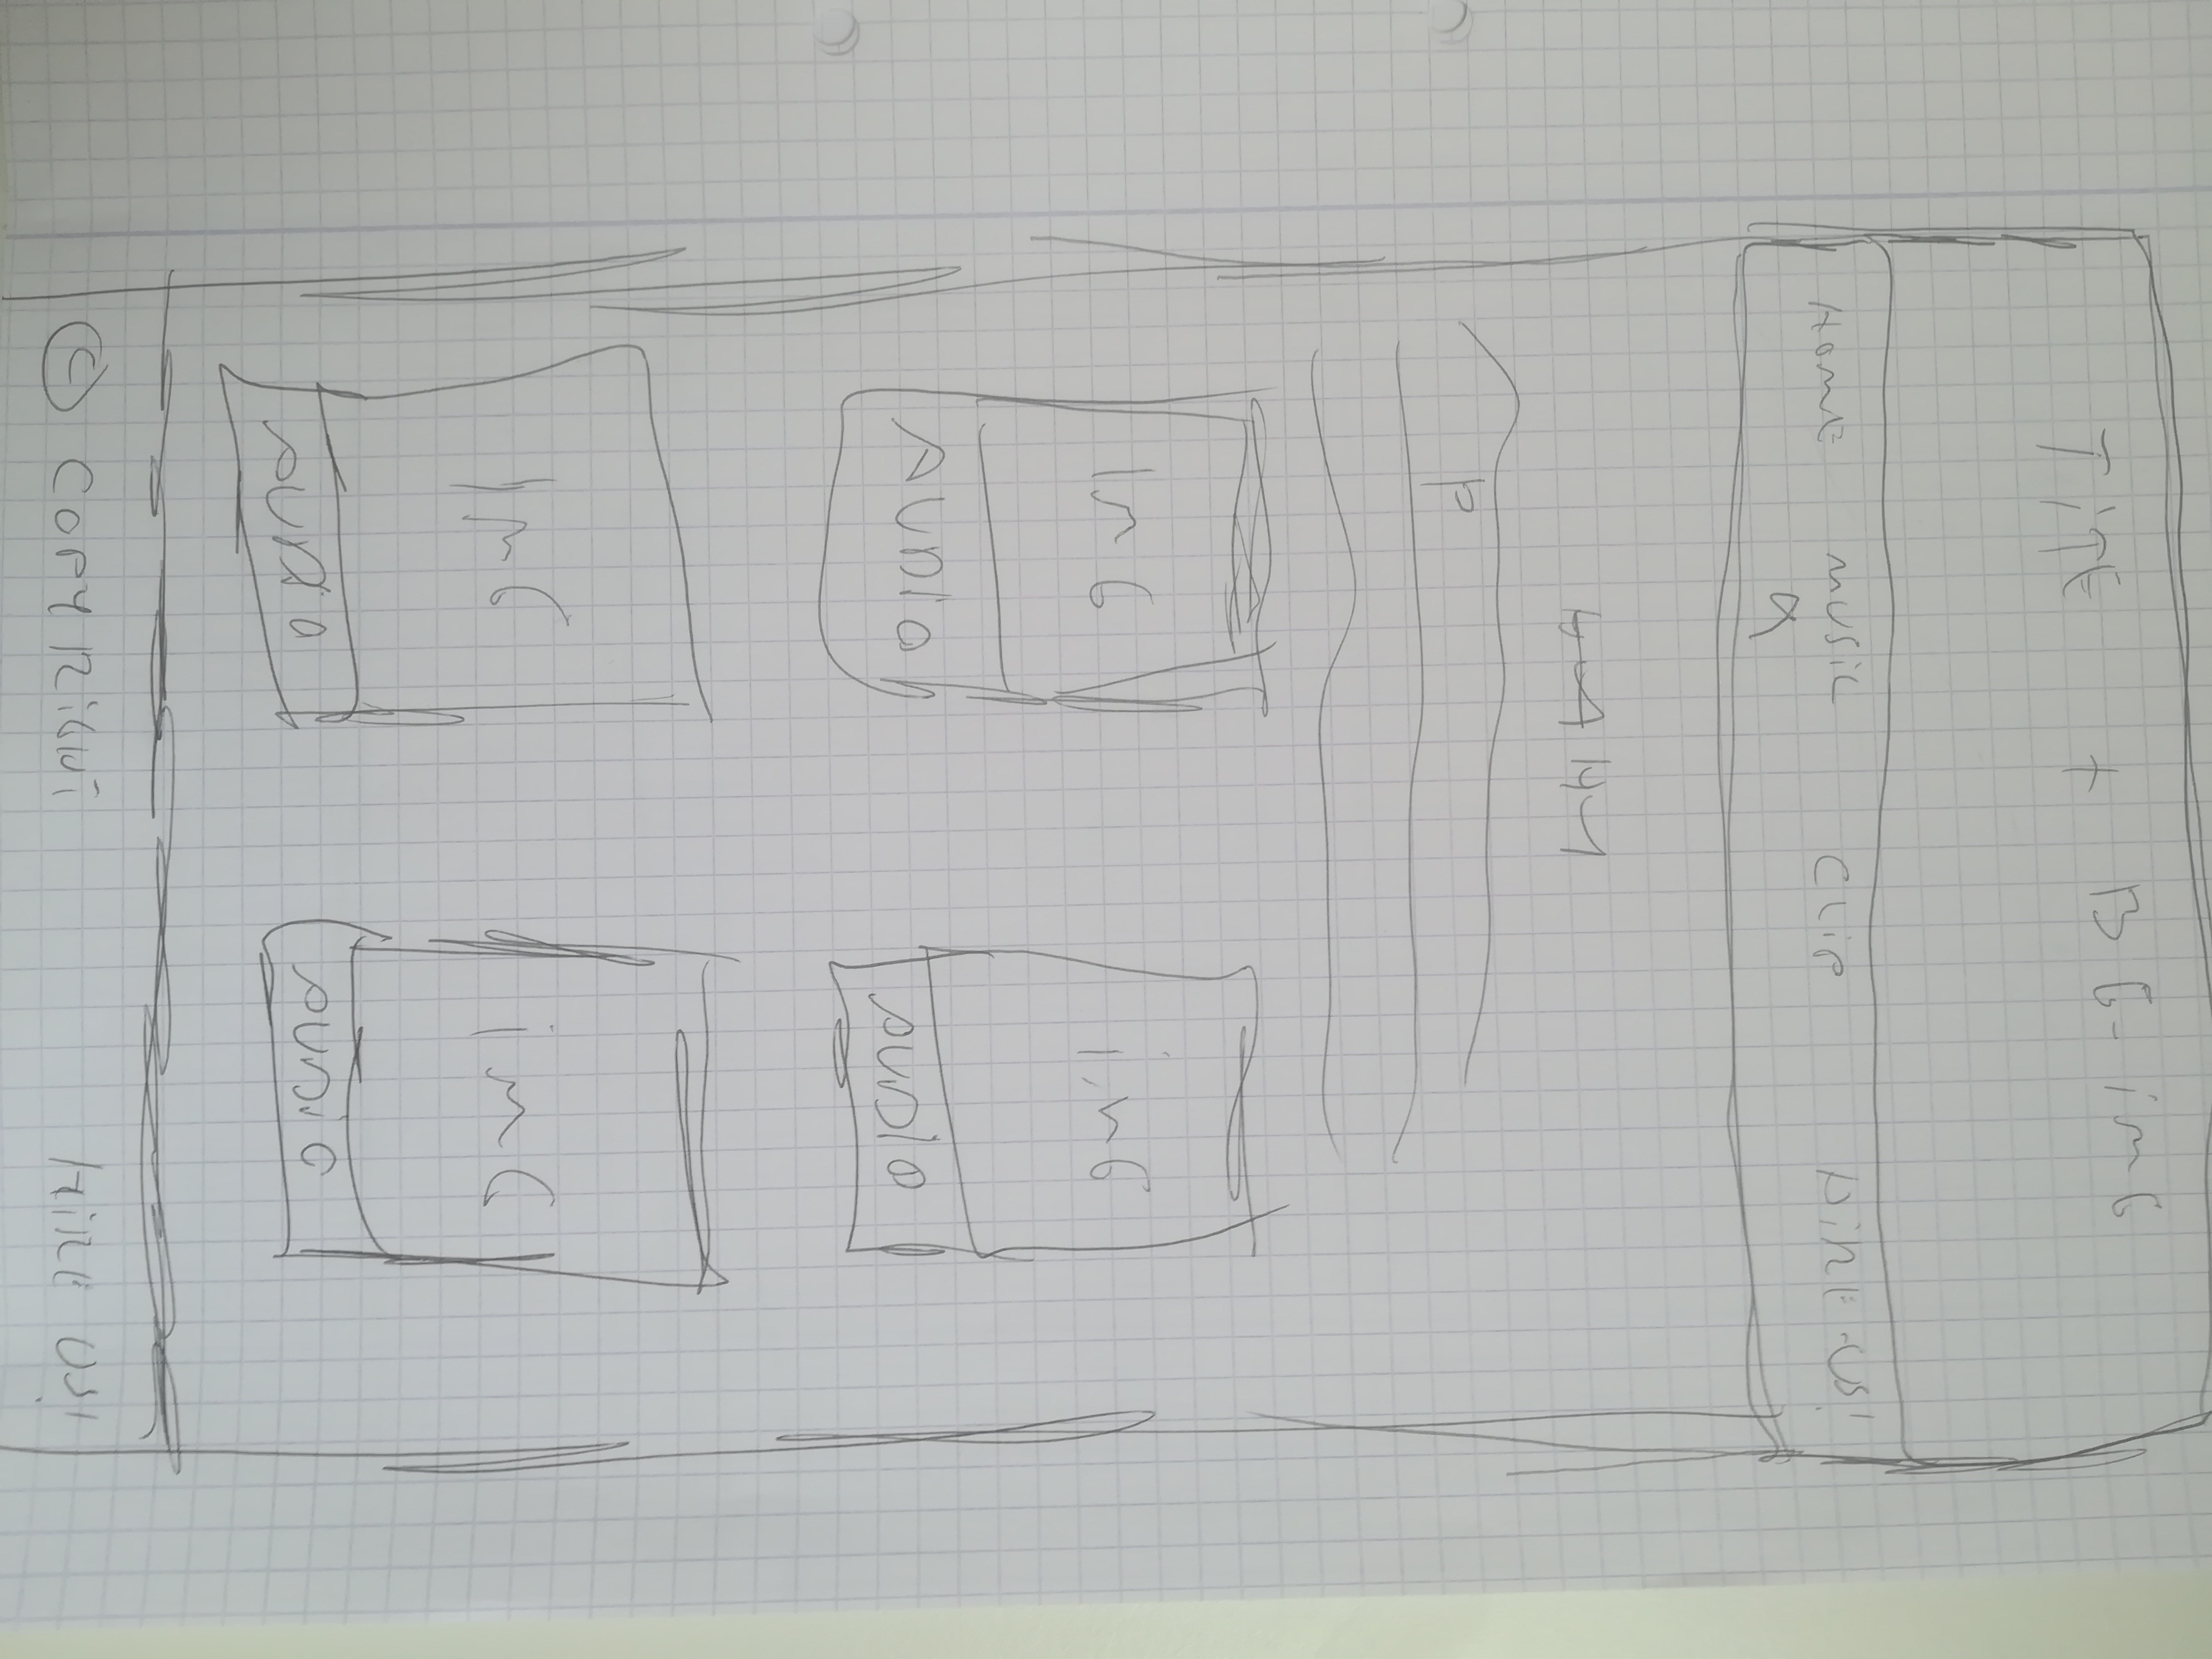 TiTE + BG-img
Home music Clip HiRE-US!
P
Img img
AUDiO AUDiO
Img img
AUDiO AUDiO
© COPYRiGHT HiRE US!